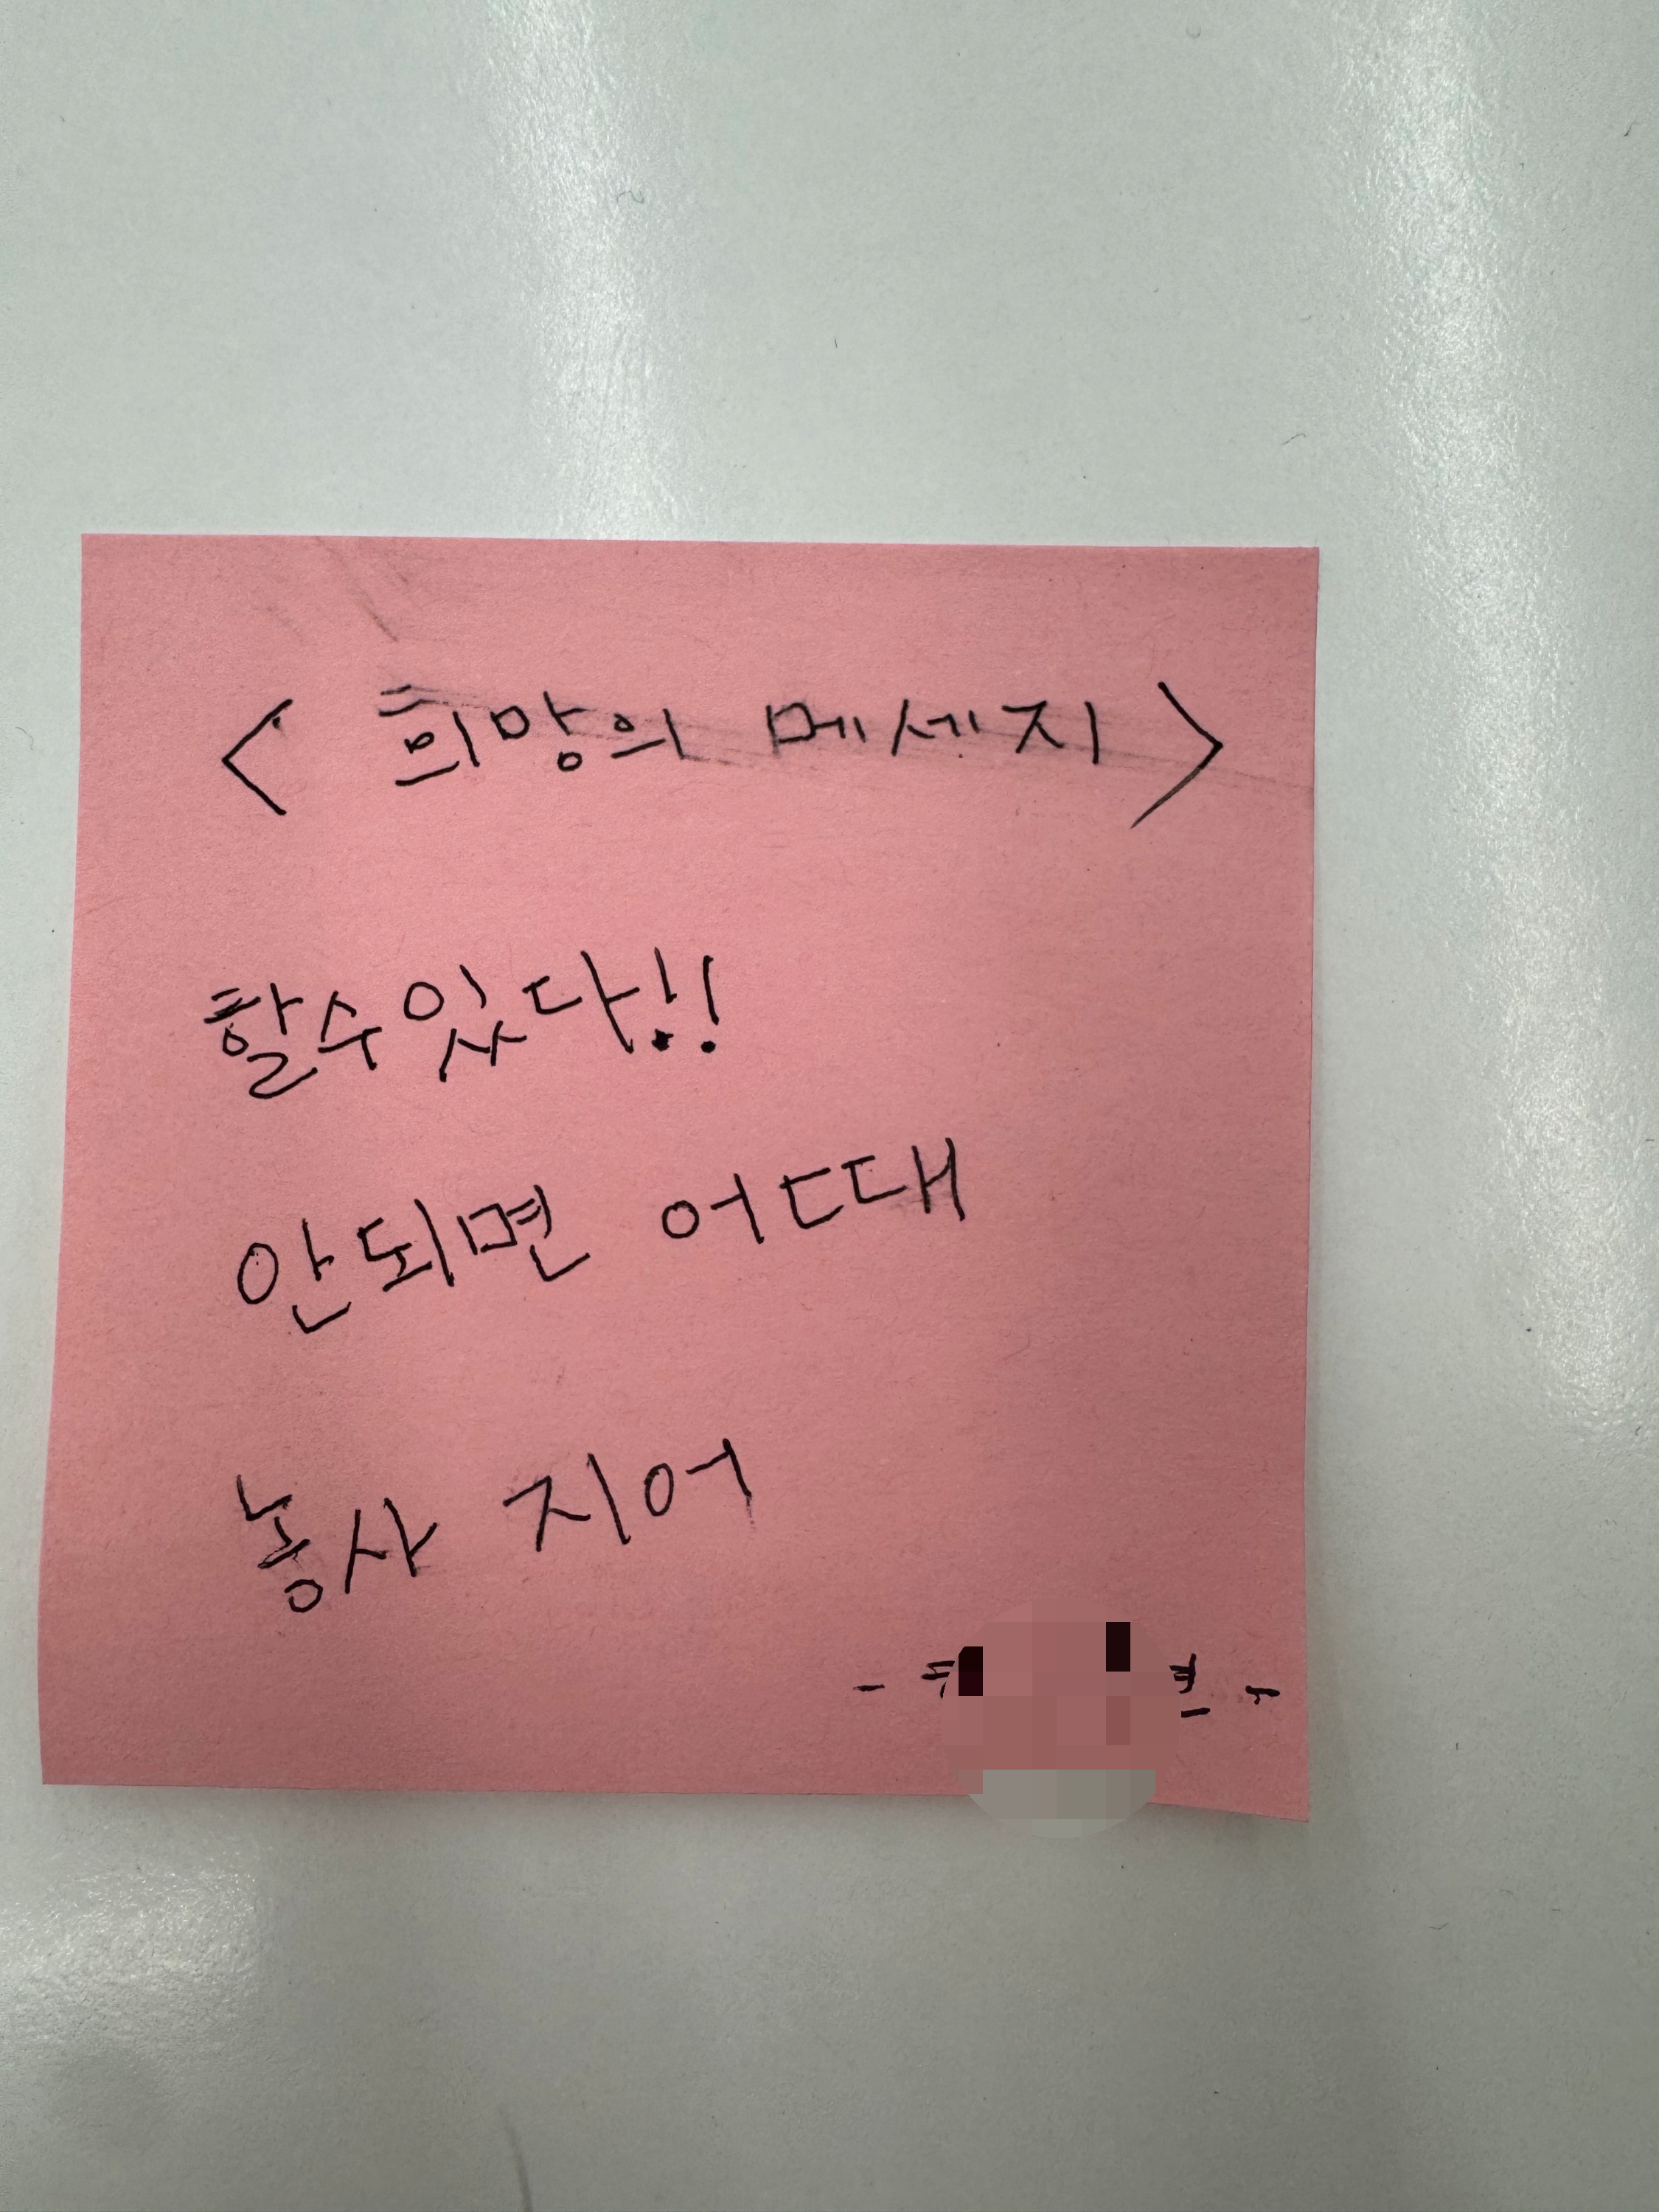 < 희망의 메세지 >
할수있다!!
안되면 어디대
농사 지어